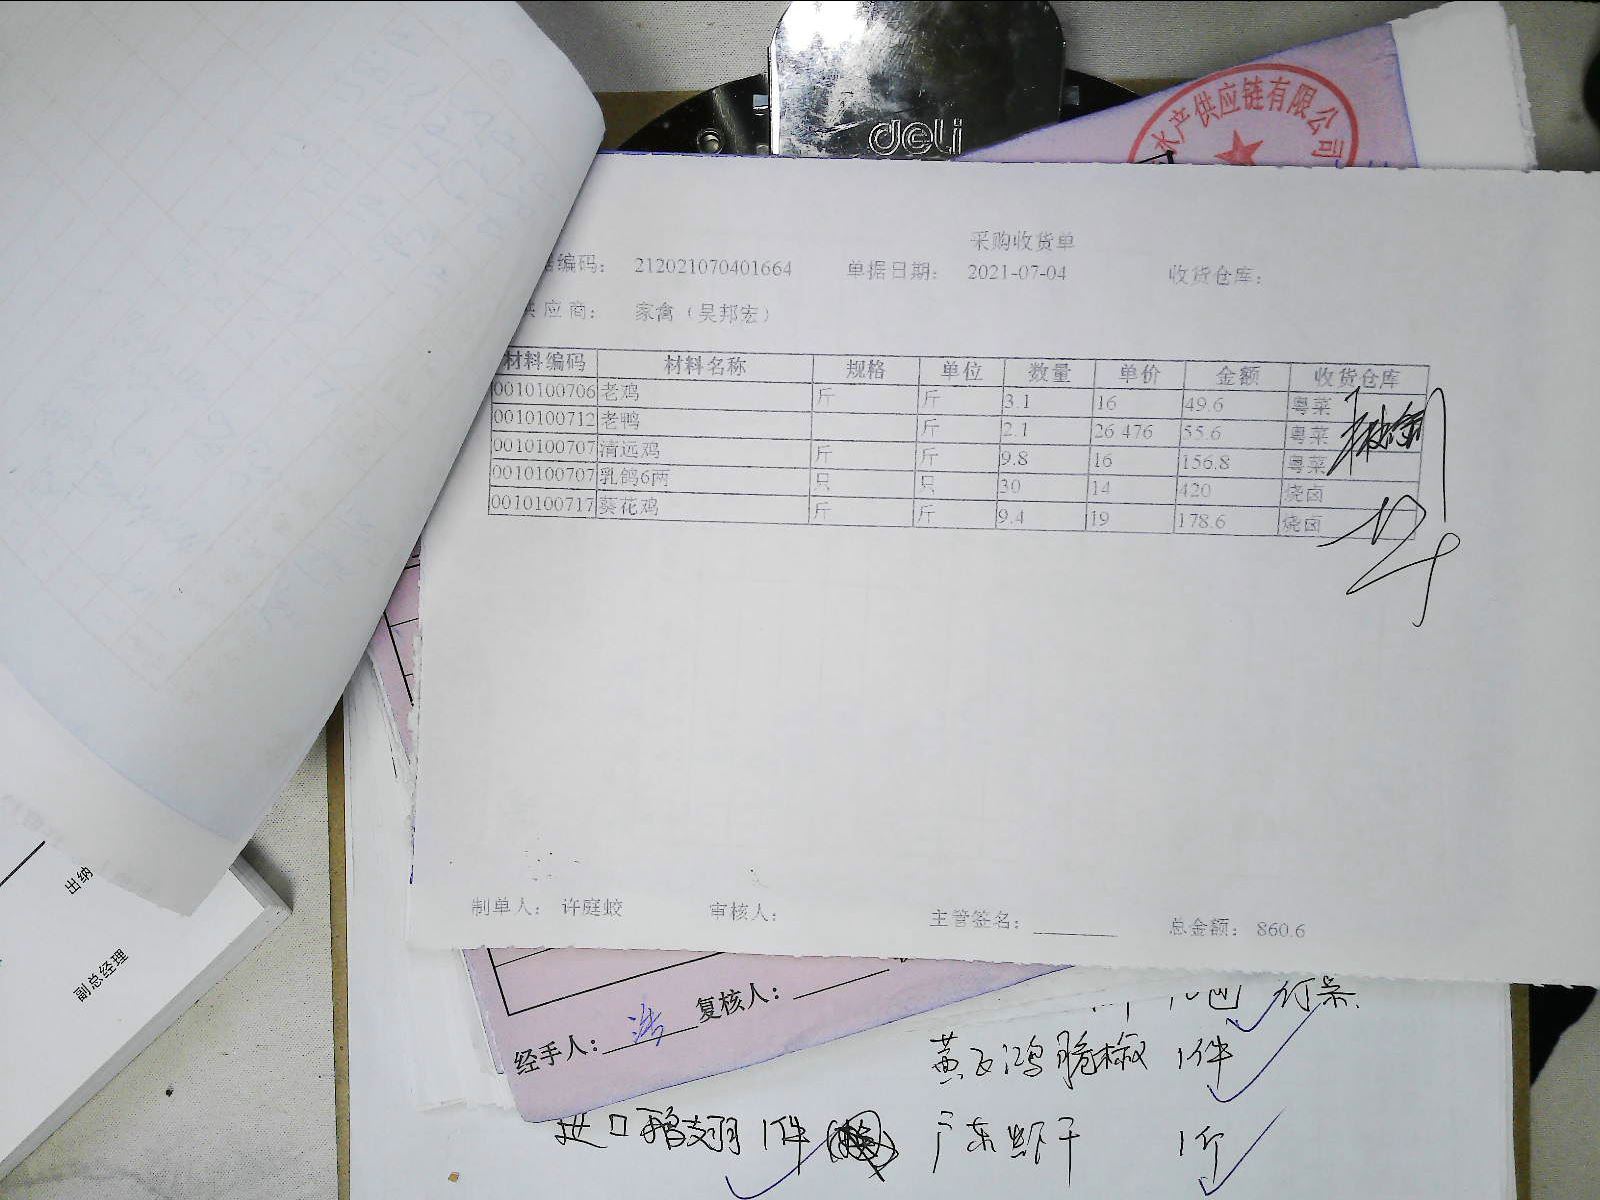 deli
水产供应链有限公司
采购收货单
编码： 212021070401664 单据日期： 2021-07-04 收货仓库：
供应商： 家禽（吴邦宏）
材料编码 材料名称 规格 单位 数量 单价 金额 收货仓库
0010100706 老鸡 斤 斤 3.1 16 49.6 粤菜
0010100712 老鸭 斤 2.1 26.476 55.6 粤菜
0010100707 清远鸡 斤 斤 9.8 16 156.8 粤菜
0010100707 乳鸽6两 只 只 30 14 420 烧卤
0010100717 葵花鸡 斤 斤 9.4 19 178.6 烧卤
制单人： 许庭蛟 审核人： 主管签名： 总金额： 860.6
出纳
副总经理
经手人： 复核人：
黄飞鸿脆椒 1件
进口 1件 广东虾干 1斤